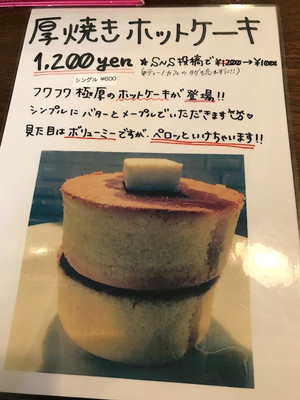 厚焼きホットケーキ
1,200yen ★SNS投稿で¥1200→¥1000
シングル¥600
フワフワ極厚のホットケーキが登場!!
シンプルにバターとメープルでいただきます
見た目はボリューミーですが、ペロッといけちゃいます!!